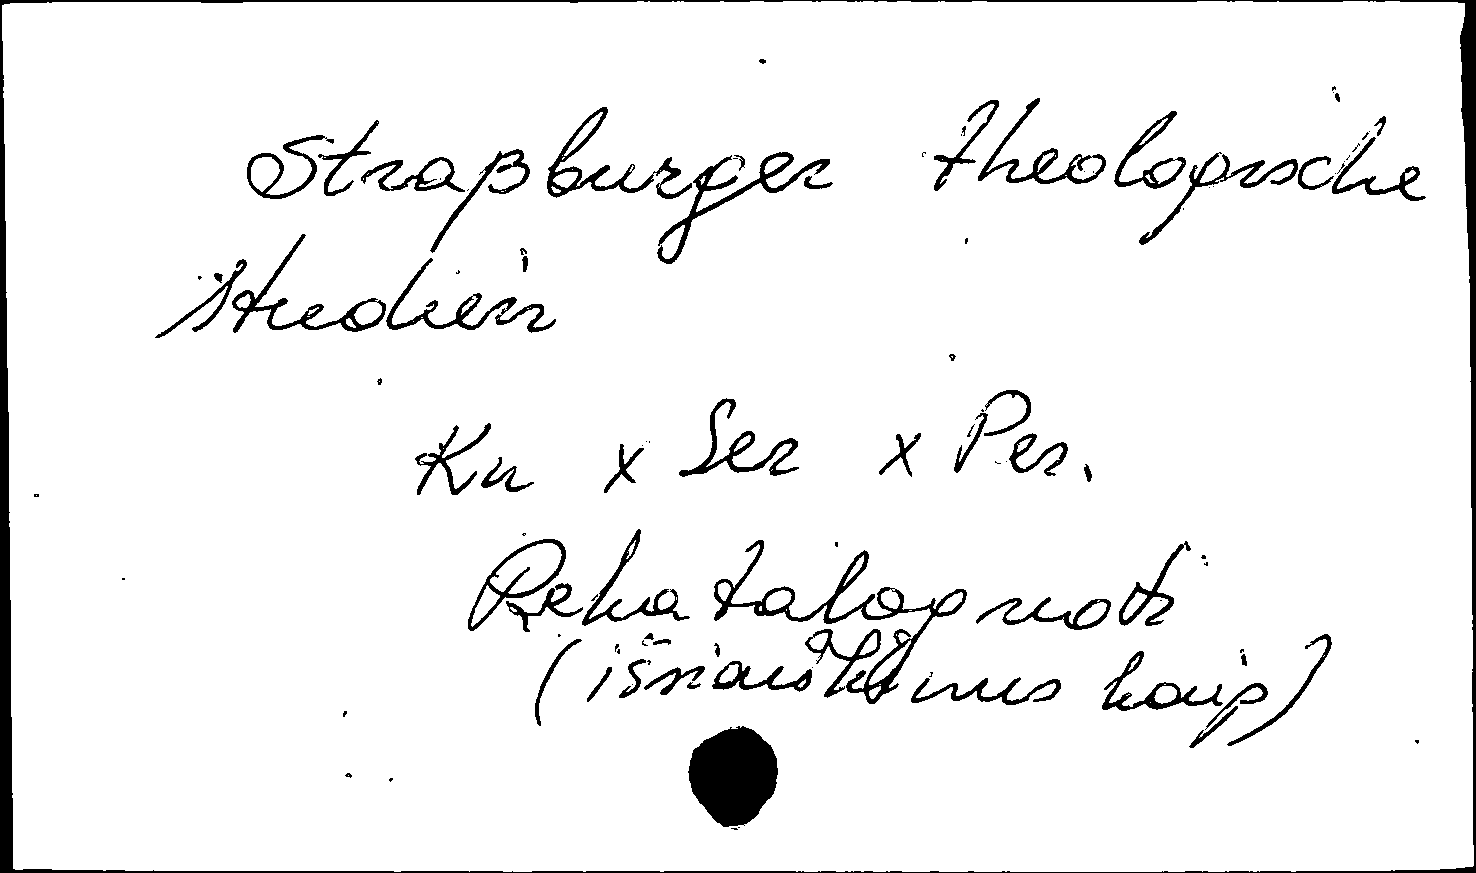 Straßburger theologische
Studien
Kn x Ser x Per.
Rekatalognoti
(išsiaiškinus kaip)